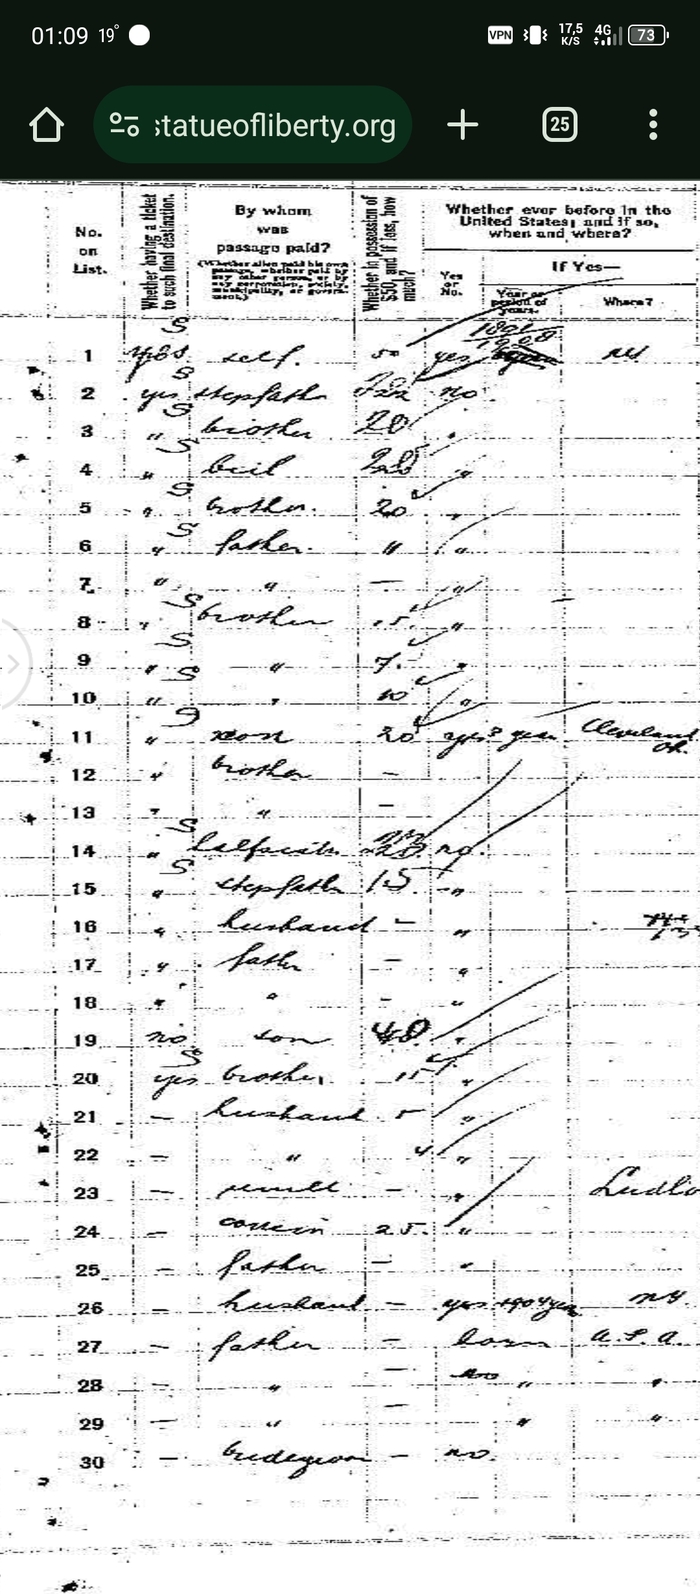 01:09 19° VPN 17,5 K/S 4G 73
statueofliberty.org 25
No. on List.
Whether having a ticket to such final destination.
By whom was passage paid?
(Whether alien paid his own passage, whether paid by any other person, or by any corporation, society, municipality, or government.)
Whether in possession of $50, and if less, how much?
Whether ever before in the United States; and if so, when and where?
Yes or No.
If Yes—
Year or period of years.
Where?
S
1 yes self. 50 yes 1908 NY
S
2 yes stepfath no
S
3 " brother 20 "
S
4 " "
S
5 " brother. 20 "
S
6 " father. " "
7 " " — "
S
8 " brother 15 "
S
9 " " 7.- "
S
10 " " 10 "
S
11 " 20 yes Cleveland Oh.
12 " brother —
13 " " —
S
14 " no.
S
15 " stepfath 15 "
16 " husband — "
17 " father — "
18 " " — "
19 no son 40 "
S
20 yes brother 15 "
21 — husband 5 "
22 — " 4 "
23 — — " Ludlo
24 — cousin 25. "
25 — father — "
26 — husband — yes NY.
27 — father — born U.S.A.
28 — " — " "
29 — " — " "
30 — bridegroom — no.